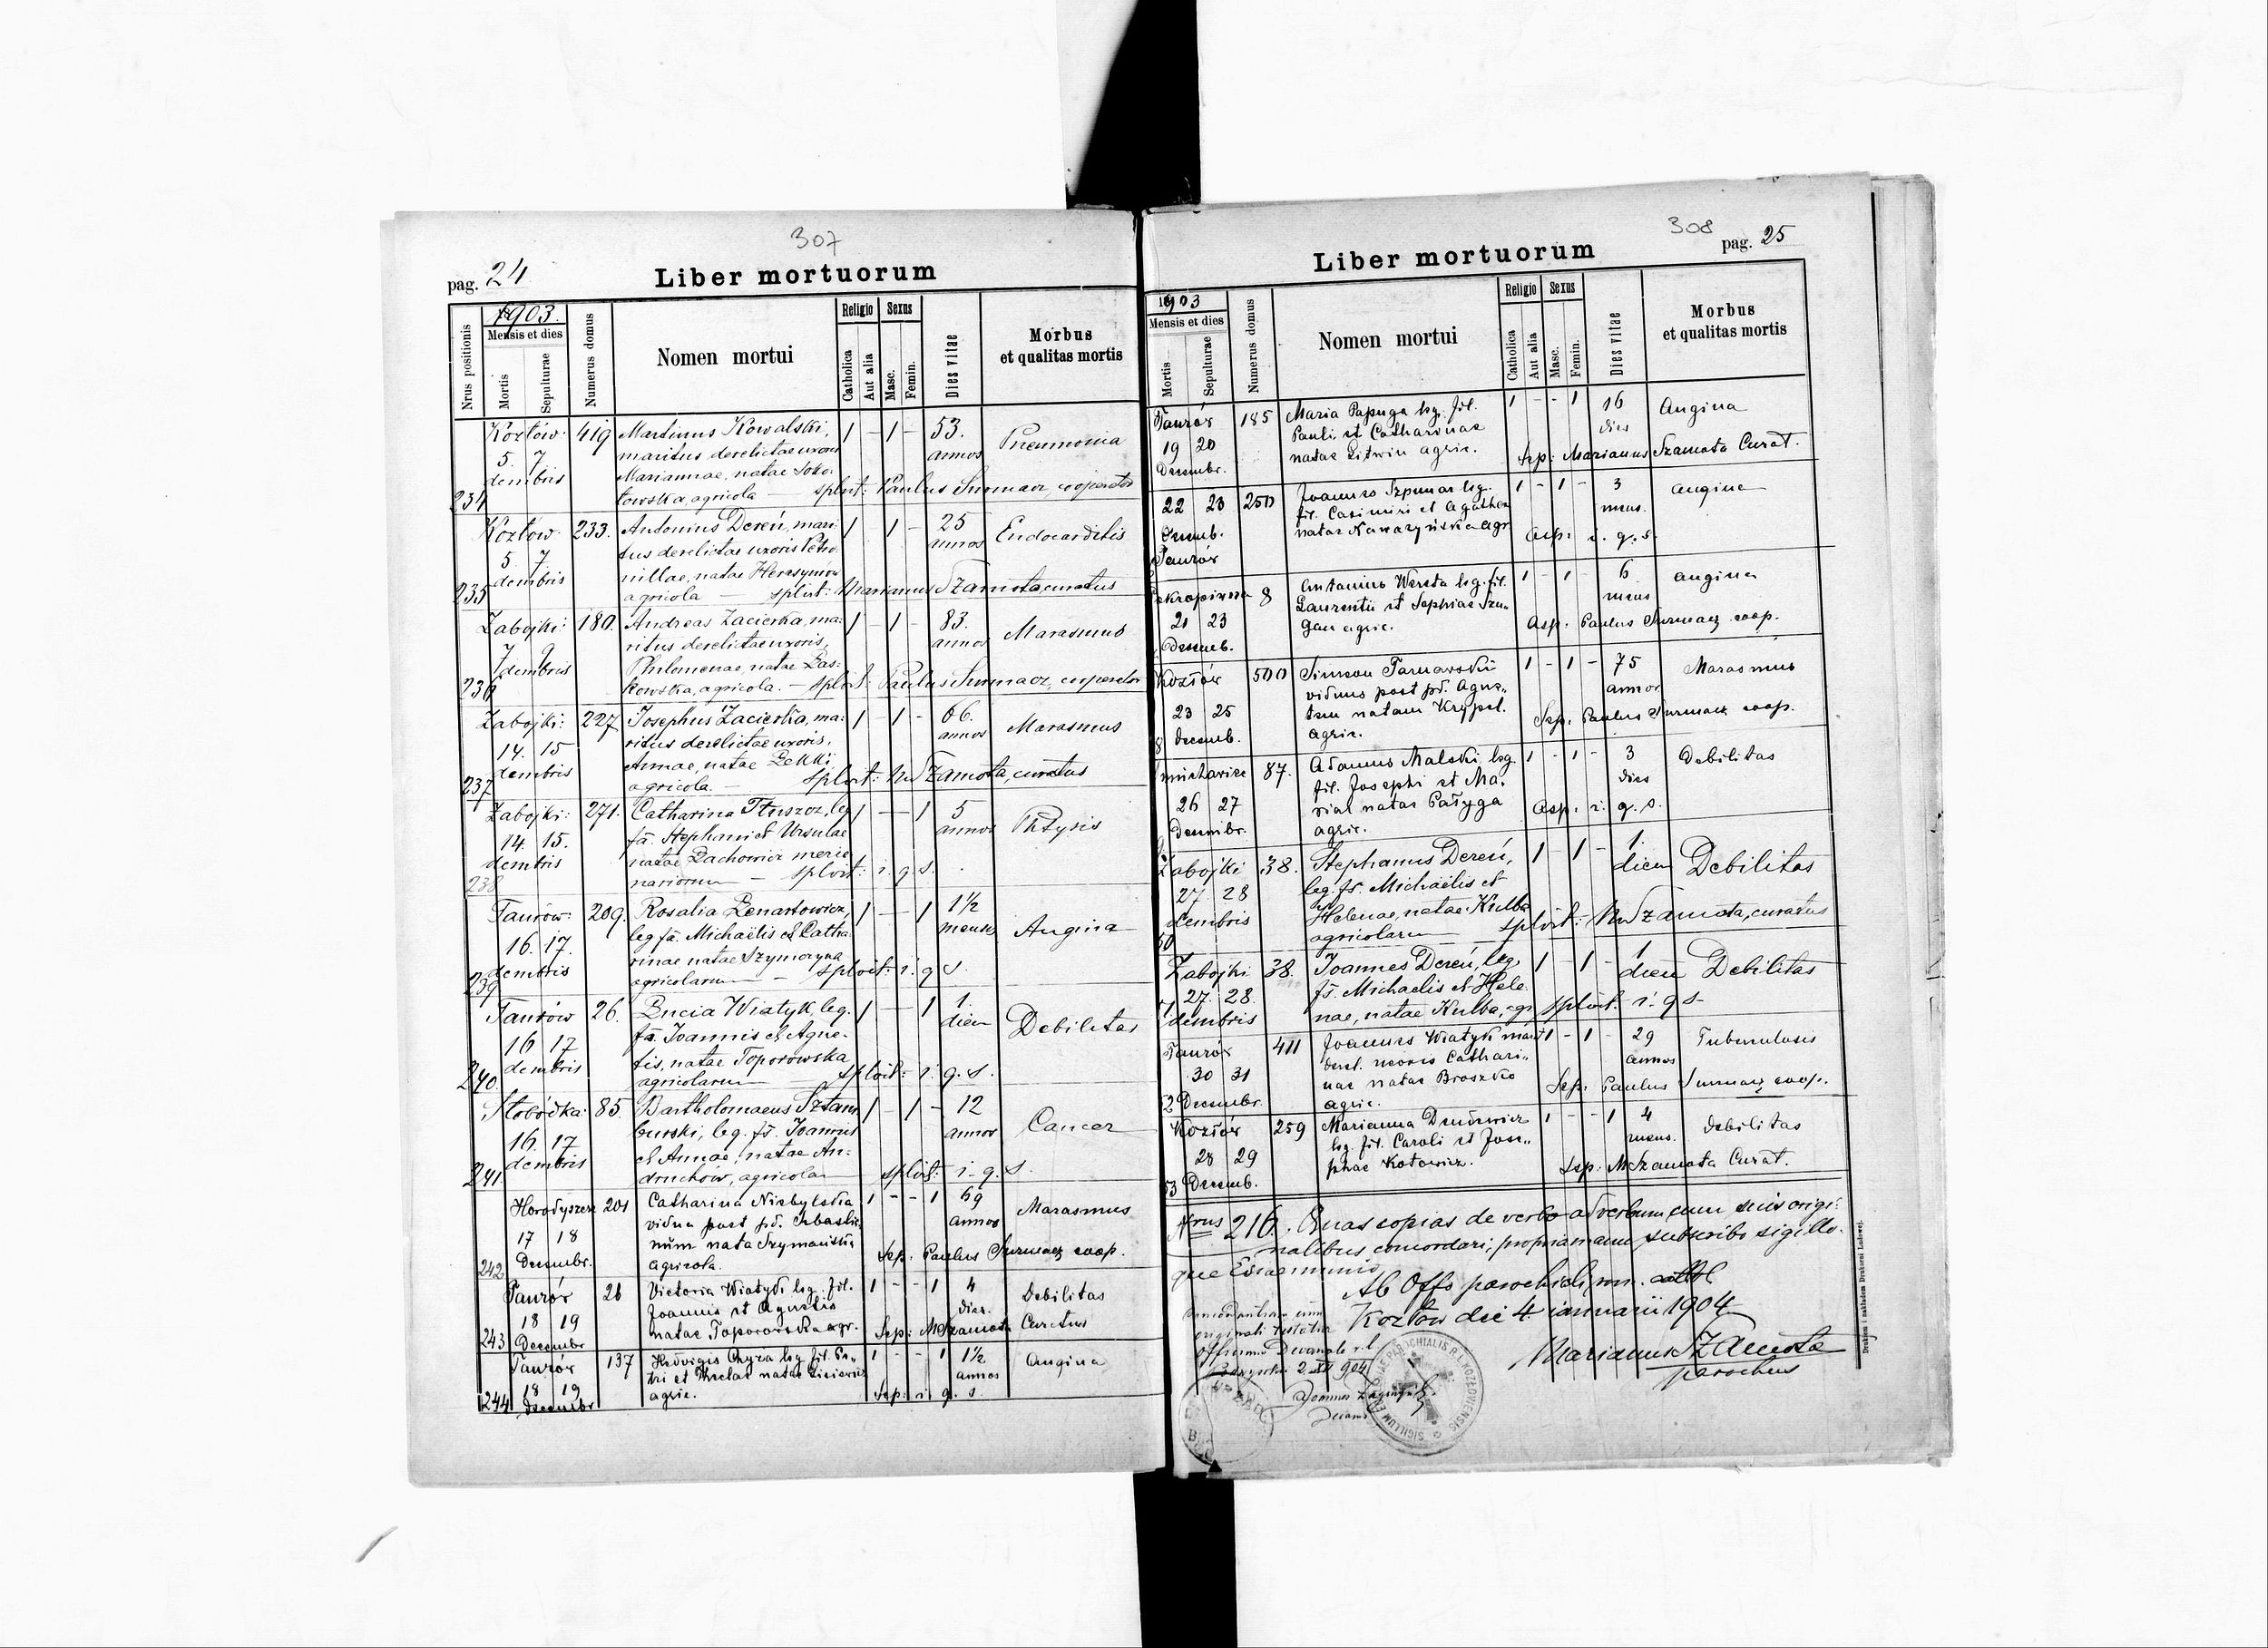 307
pag. 24
Liber mortuorum
Nrus positionis
1903.
Mensis et dies
Mortis
Sepulturae
Numerus domus
Nomen mortui
Religio
Catholica
Aut alia
Sexus
Masc.
Femin.
Dies vitae
Morbus
et qualitas mortis
234
Kozłów
5. 7
dcembris
419
Martinus Kowalski,
maritus derelictae uxoris
Mariannae, natae Soko-
łowska, agricola —
1 - 1 -
53.
annos
Pneumonia
splvit: Paulus Surmacz, cooperator
235
Kozłów
5. 7.
dcembris
233.
Antonius Dereń, mari-
tus derelictae uxoris Petro-
nillae, natae
agricola —
1 - 1 -
25
annos
Endocarditis
splvit: Marianus Szamota, curatus
236
Zabojki:
7 9
dcembris
180.
Andreas Zacierka, ma-
ritus derelictae uxoris,
Philomenae, natae Las-
kowska, agricola. —
1 - 1 -
83.
annos
Marasmus
splvit: Paulus Surmacz, cooperator
237
Zabojki:
14. 15
dcembris
227
Josephus Zacierka, ma-
ritus derelictae uxoris,
Annae, natae Lekki
agricola. —
1 - 1 -
66.
annos
Marasmus
splvit: M Szamota, curatus
238
Zabojki:
14. 15.
dcembris
271.
Catharina Tłuszcz, leg
fa. Stephani et Ursulae
natae Lachowicz merce
nariorum —
1 — 1
5
annos
Phtysis
splvit: i. q. s.
239
Taurów:
16. 17.
dcembris
209.
Rosalia Lenartowicz,
leg fa. Michaëlis et Catha-
rinae natae Szymczyna
agricolarum —
1 — 1
1½
menses
Angina
splvit: i. q. s.
240.
Taurów
16 17
dcembris
26.
Lucia Wiatyk, leg.
fa. Joannis et Agne-
tis, natae Toporowska
agricolarum —
1 — 1
1.
diem
Debilitas
splvit: i. q. s.
241
Słobódka:
16. 17
dcembris
85.
Bartholomaeus Sztam
burski, leg. fs. Joannis
et Annae, natae An-
druchów, agricolar
1 - 1 -
12
annos
Cancer
splvit: i. q. s.
242
Horodyszcze
17 18
Decembr.
201
Catharina Niebylska
vidua post pd. Sebastia
num nata Szymańska
agricola.
1 - - 1
69
annos
Marasmus
Sep. Paulus Surmacz coop.
243
Taurów
18 19
Decembr
26
Victoria Wiatyk leg. fil.
Joannis et Agnetis
natae Toporowska agr.
1 - - 1
4
dies.
Debilitas
Sep: M Szamota Curatus
244
Taurów
18 19
decembr
137
Hedvigis Chyra leg fil. Pe-
tri et
agric.
1 - - 1
1½
annos
Angina
Sep: i. q. s.
308
pag. 25
Liber mortuorum
1903
Mensis et dies
Mortis
Sepulturae
Numerus domus
Nomen mortui
Religio
Catholica
Aut alia
Sexus
Masc.
Femin.
Dies vitae
Morbus
et qualitas mortis
Taurów
19 20
Decembr.
185
Maria Papuga leg. fil.
Pauli et Catharinae
natae Litwin agric.
1 - - 1
16
dies
Angina
Sep: Marianus Szamota Curat.
22 23
Taurów
250
Joannes Szpunar leg.
fil. Casimiri et Agathae
natae Nawazyńska agr
1 - 1 -
3
mens.
Angina
Asp: i. q. s.
21 23
Decemb.
8
Antonius Wereta leg. fil.
Laurentii et Sophiae Szu-
gan agric.
1 - 1 -
6
mens
Angina
Asp. Paulus Surmacz coop.
Kozłów
23 25
decemb.
500
Simeon Tarnawski
viduus post pd. Agne-
tem natam
agric.
1 - 1 -
75
annor
Marasmus
Sep. Paulus Surmacz coop.
26 27
Decembr.
87.
Adamus Malski leg
fil. Josephi et Ma-
riae natae Pałyga
agric.
1 - 1 -
3
dies
Debilitas
Asp. i. q. s.
Zabojki
27 28
dcembris
38.
Stephanus Dereń,
leg. fs. Michaëlis et
Helenae, natae Kulba
agricolarum
1 - 1 -
1.
diem
Debilitas
splvit: M Szamota, curatus
Zabojki
27. 28.
dcembris
38.
Joannes Dereń, leg.
fs. Michaelis et Hele-
nae, natae Kulba, agr
1 - 1 -
1
diem
Debilitas
splvit. i. q. s.
Taurów
30 31
Decembr.
411
Joannes Wiatyk marit
derel. uxoris Cathari-
nae natae Broszko
agric.
1 - 1 -
29
annos
Tuberculosis
Sep. Paulus Surmacz coop.
Kozłów
28 29
Decemb.
259
Marianna
leg fil. Caroli et Jose-
phae Kotowicz.
1 - - 1
4
mens.
Debilitas
Sep. M Szamota Curat.
Nrus 216. Quas copias de verbo ad verbum cum suis origi-
nalibus concordari, propria manu subscribo sigillo-
que
Ab Offo parochiali
Kozłów die 4 ianuarii 1904
Marianus Szamota
parochus
originali testatur
Drukiem i nakładem Drukarni Ludowej.